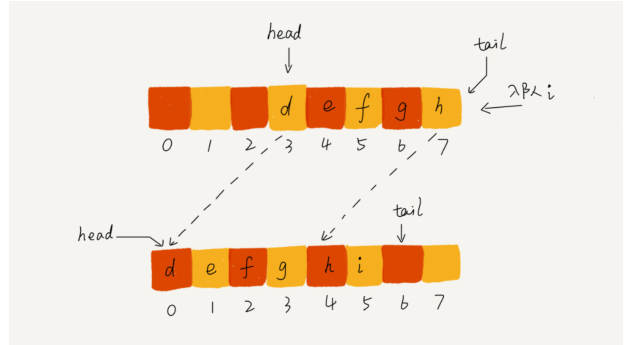 head
tail
d e f g h
入队 i
0 1 2 3 4 5 6 7
head
tail
d e f g h i
0 1 2 3 4 5 6 7